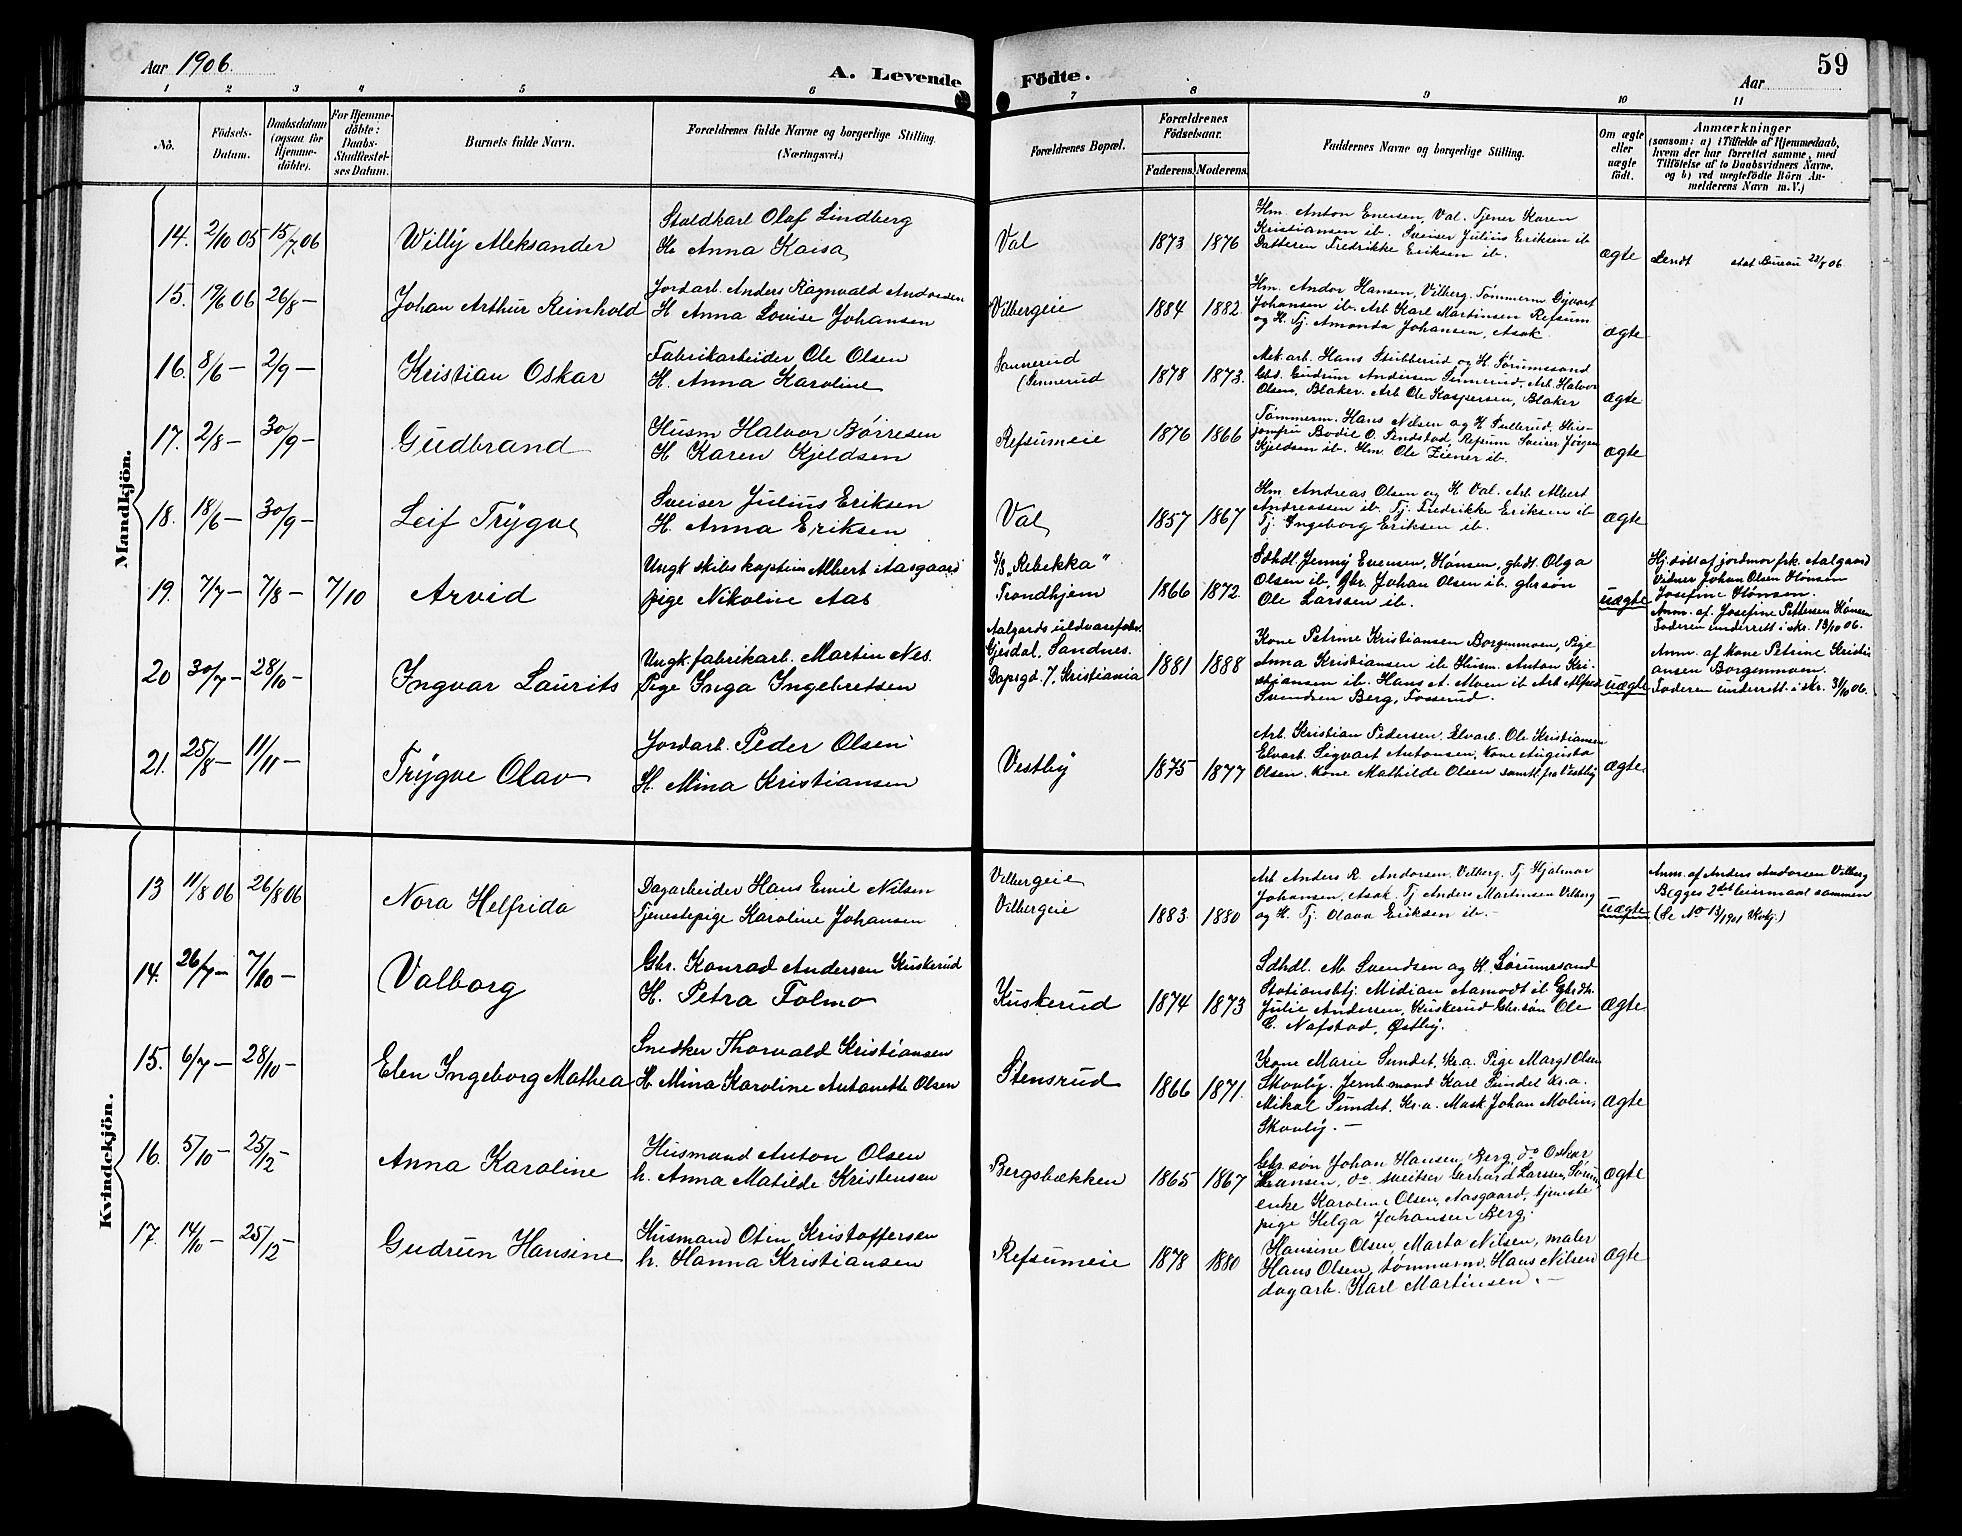 Aar 1906.
A. Levende Födte.
Aar
59
1 2 3 4 5 6 7 8 9 10 11
No.
Födsels-Datum.
Daabsdatum (ogsaa for Hjemme-döbte).
For Hjemme-döbte: Daabs-Stadfæstel-ses Datum.
Barnets fulde Navn.
Forældrenes fulde Navne og borgerlige Stilling.
(Næringsvei.)
Forældrenes Bopæl.
Forældrenes Födselsaar.
Faderens. Moderens.
Faddernes Navne og borgerlige Stilling.
Om ægte eller uægte födt.
Anmærkninger
(saasom: a) i Tilfælde af Hjemmedaab,
hvem der har forrettet samme, med
Tilföielse af to Daabsvidners Navne,
og b) ved uegtefödte Börn An-
melderens Navn m. V.)
Mandkjön.
14. 2/10 05 15/7 06
Willy Aleksander
Staldkarl Olaf Lindberg
H. Anna Kaisa
Val
1873 1876
Hm. Anton Enersen, Val. Tjener Karen
Kristiansen ib. Sveiser Julius Eriksen ib
Datteren Fredrikke Eriksen ib.
ægte
Sendt stat Bureau 22/8 06.
15. 19/6 06 26/8 –
Johan Arthur Reinhold
Jordarb. Anders Ragnvald Andorsen
H Anna Lovise Johansen
Vilbergeie
1884 1882
Hm. Andor Hansen, Vilberg. Tömmerm
Johansen ib. Arb Karl Martinsen Refsum
og H. Tj. Amanda Johansen, Asak
ægte
16. 8/6 – 2/9 –
Kristian Oskar
Fabrikarbeider Ole Olsen
H. Anna Karoline
Sannerud
(Sennerud
1878 1873.
Mek. arb. Hans Stubberud og H. Sørumsand
Gbd. Gudrun Andersen Sennerud. Arb. Halvor
Olsen, Blaker. Arb Ole Kaspersen, Blaker
ægte
17. 2/8 – 30/9 –
Gudbrand
Husm Halvor Børresen
H. Karen Kjeldsen
Refsumeie
1876 1866
Tömmerm. Hans Nilsen og H
jomfru Bodil O. Refsum Sveiser Jørgen
Kjeldsen ib. Hm. Ole Ziener ib.
ægte
18. 18/6 – 30/9 –
Leif Trygve
Sveiser Julius Eriksen
H. Anna Eriksen
Val
1857 1867
Hm. Andreas Olsen og H Val. Arb Albert
Andreassen ib. Tj. Fredrikke Eriksen ib
Tj. Ingeborg Eriksen ib.
ægte
19. 7/7 – 7/8 – 7/10
Arvid
Ungk skibskaptein Albert Aasgaard
pige Nikoline Aas
S/S „Rebekka"
Trondhjem
1866 1872.
Sdhdl. Jenny Evensen, Hønsen, gbdt. Olga
Olsen ib, Gbr. Johan Olsen ib. gbrsøn
Ole Larssen ib.
uægte
Hj. døbt af jordmor frk. Aalgaard
Vidner Johan Olsen Hønsen
Josefine Hønsen.
Anm. af. Josefine Pettersen Hønsen
Faderen underrett i skr. 13/10 06.
20 30/7 – 28/10 –
Ingvar Laurits
Ungk. fabrikarb. Martin Nes.
Pige Inga Ingebretsen
Aalgards uldvarefabr.
Gjesdal, Sandnes.
Dopsgd. 7, Kristiania
1881 1888
Kone Petrine Kristiansen Borgenmoen, Pige
Anna Kristiansen ib Husm. Anton Kri-
stiansen ib. Hans A. Moen ib Arb Alfred
Svendsen Berg, Fosserud.
uægte
Anm. af kone Petrine Kristi
ansen Borgenmoen.
Faderen underrett. i skr. 31/10 06.
21. 25/8 – 11/11 –
Trygve Olav
Jordarb. Peder Olsen
H. Mina Kristiansen
Vestby
1875 1877
Arb. Kristian Pedersen. Elvarb. Ole Kristiansen
Elvarb. Sigvart Antonsen. Kone Augusta
Olsen. Kone Mathilde Olsen samtl. fra Vestby
ægte.
Kvindekjön.
13 11/8 06 26/8 06
Nora Helfrida
Dagarbeider Hans Emil Nilsen
Tjenestepige Karoline Johansen
Vilbergeie
Vilbergeie
1883. 1880
Arb Anders R. Andorsen. Vilberg. Tj Hjalmar
Johansen, Asak. Tj Anders Martinsen Vilberg
og H. Tj. Olava Eriksen ib. –
uægte
Anm. af Anders Andorsen Vilberg
Begges 2det leiermaal sammen
(Se No 13/1901 Kvkj.)
14. 26/7 – 7/10 –
Valborg
Gbr. Konrad Andersen Kuskerud
H. Petra Tolmo
Kuskerud
1874 1873
Sdhdl. M. Svendsen og H. Sørumsand
Stationsbtj. Midian Aamodt ib Gbrdtr.
Julie Andersen, Kuskerud Gbr. søn Ole
C. Nafstad, Østby.
ægte
15. 6/7 – 28/10 –
Elen Ingeborg Mathea
Snedker Thorvald Kristiansen
H. Mina Karoline Antonette Olsen
Stensrud
1866 1871.
Kone Marie Sundet, Kr.a. Pige Margt Olsen
Skovby. Jernb.mand Karl Sundet Kr.a.
Mikal Sundet. Kr.a. Mask Johan Molin,
Skovby. –
ægte
16. 5/10 – 25/12 –
Anna Karoline
Husmand Anton Olsen
h. Anna Matilde Kristensen
Bergsbækken
1865 1867
Gbr. søn Johan Hansen, Berg, do Oskar
Hansen, do. sveitser Gerhard Larssen, Sørum,
enke Karoline Olsen, Aasgaard, tjeneste
pige Helga Johansen Berg.
ægte
17. 14/10 – 25/12 –
Gudrun Hansine
Husmand Otin Kristoffersen
h. Hanna Kristiansen
Refsumeie
1878 1880
Hansine Olsen, Marta Nilsen, maler
Hans Olsen, tømmerm. Hans Nilsen
dagarb. Karl Martinsen. –
ægte